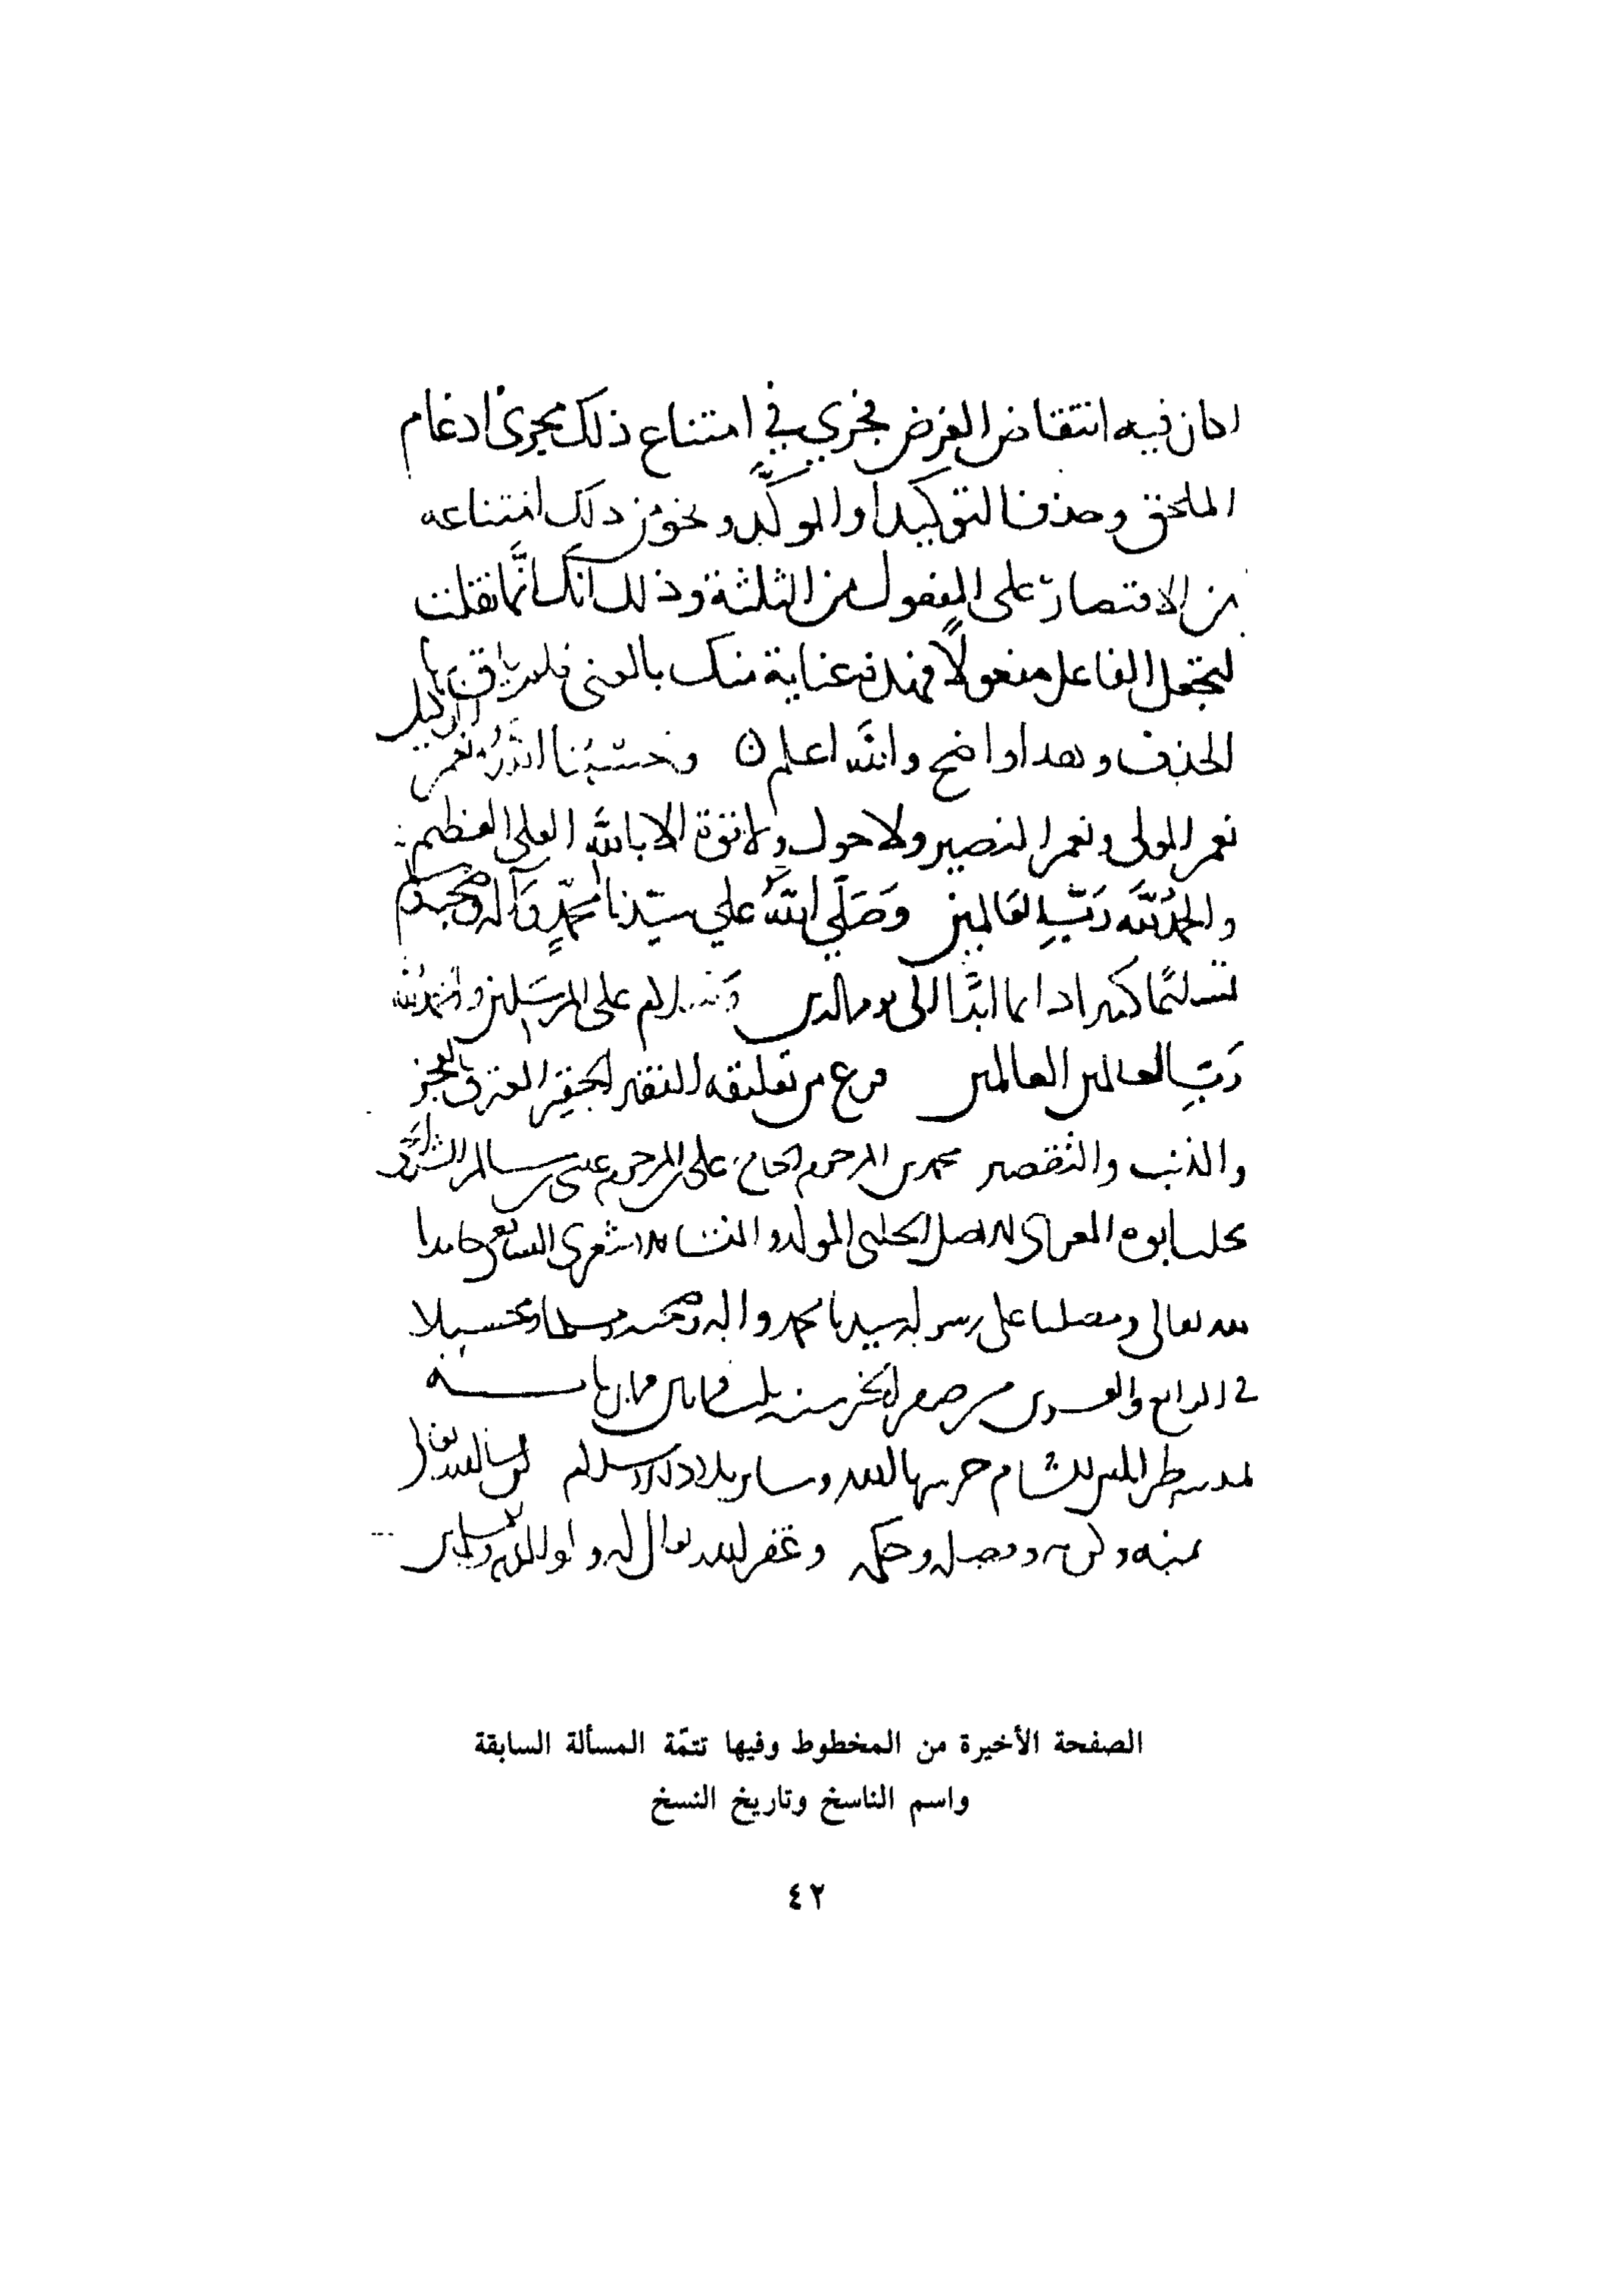 اذ كان فيه انتقاض الغرض فجرى في امتناع ذلك مجرى ادغام
الملحق وحذف التوكيد او الموكد ونحو من ذلك امتناعه
من الاقتصار على المفعول من الثلثة وذلك انك انما نقلت
لتجعل الفاعل مفعولا فهذه عناية منك بالمعنى فلم
الحذف وهذا واضح والله اعلم وحسبنا الله ونعم الوكيل
نعم المولى ونعم النصير ولا حول ولا قوة الا بالله العلى العظيم
والحمد لله رب العالمين وصلى الله علي سيدنا محمد وآله وصحبه وسلم
تسليما كثيرا دائما ابدا الى يوم الدين وسلام على المرسلين والحمد لله
رب العالمين العالمين فرغ من تعليقه الفقير الحقير المعترف بالعجز
والذنب والتقصير محمد بن المرحوم الحاج على المرحوم عيسى بن سالم
بحلب ابوه المعراوى الاصل الحلبى المولد والمنشا الاشعرى الشافعى حامدا
لله تعالى ومصليا على رسوله سيدنا محمد واله وصحبه ومسلما ومحسبلا
في الرابع والعشرين من صفر الخير سنة ثلث وثمانين وثمان ماية
بمدينة طرابلس الشام حرسها الله وساير بلاد الاسلام ان شا الله تعالى
بمنه وكرمه وفضله وحكمه وغفر الله تعالى له ولوالديه
الصفحة الأخيرة من المخطوط وفيها تتمّة المسألة السابقة
واسم الناسخ وتاريخ النسخ
٤٢